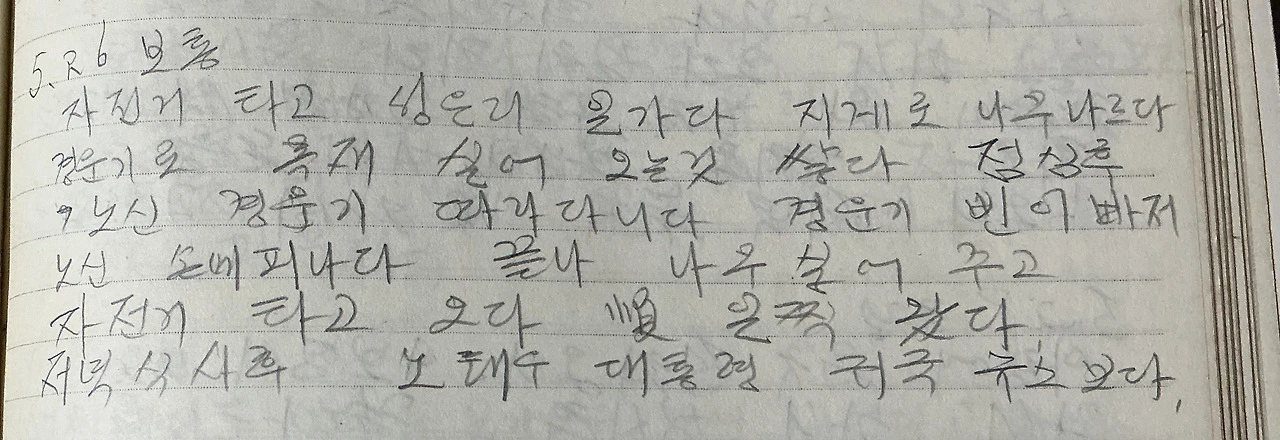 5. 26 보통
자전거 타고 성은리 올가다 지게로 나무나르다
경운기로 목재 실어 오는것 쌓다 점심후
노신 경운기 따라다니다 경운기 빈이빠저
노신 손메피나다 끝나 나무 실어 주고
자전거 타고 오다 順 일찍 왔다
저녁식사후 노태우 대통령 귀국 뉴스보다.